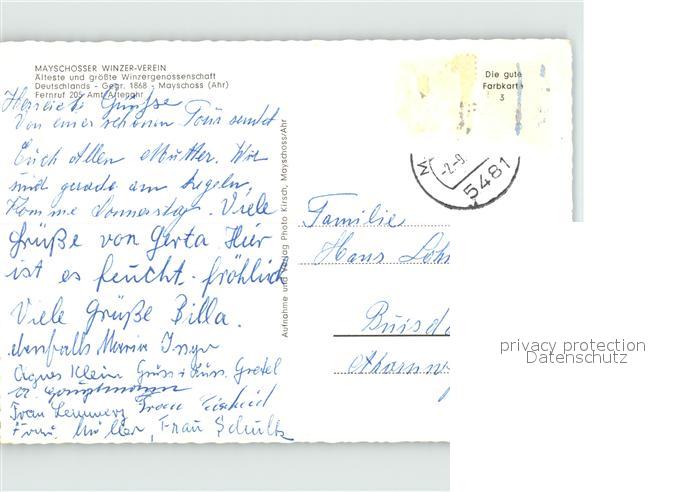 MAYSCHOSSER WINZER-VEREIN
Älteste und größte Winzergenossenschaft
Deutschlands - Gegr. 1868 - Mayschoss (Ahr)
Fernruf 205 Amt Altenahr
Die gute
Farbkarte
3
-2.-9
5481
Aufnahme und Verlag Photo Kirsch, Mayschoss/Ahr
Grüße
Von einer schönen Tour sendet
Euch Allen Mutter. Wir
sind gerade am kegeln,
Komme Donnerstag. Viele
Grüße von Gerta Hier
ist es feucht-fröhlich
Viele Grüße Billa.
ebenfalls Maria
Agnes Klein Gruss Gretel
Frau Frau
Frau Müller, Frau Schultz
Familie
Hans
privacy protection
Datenschutz